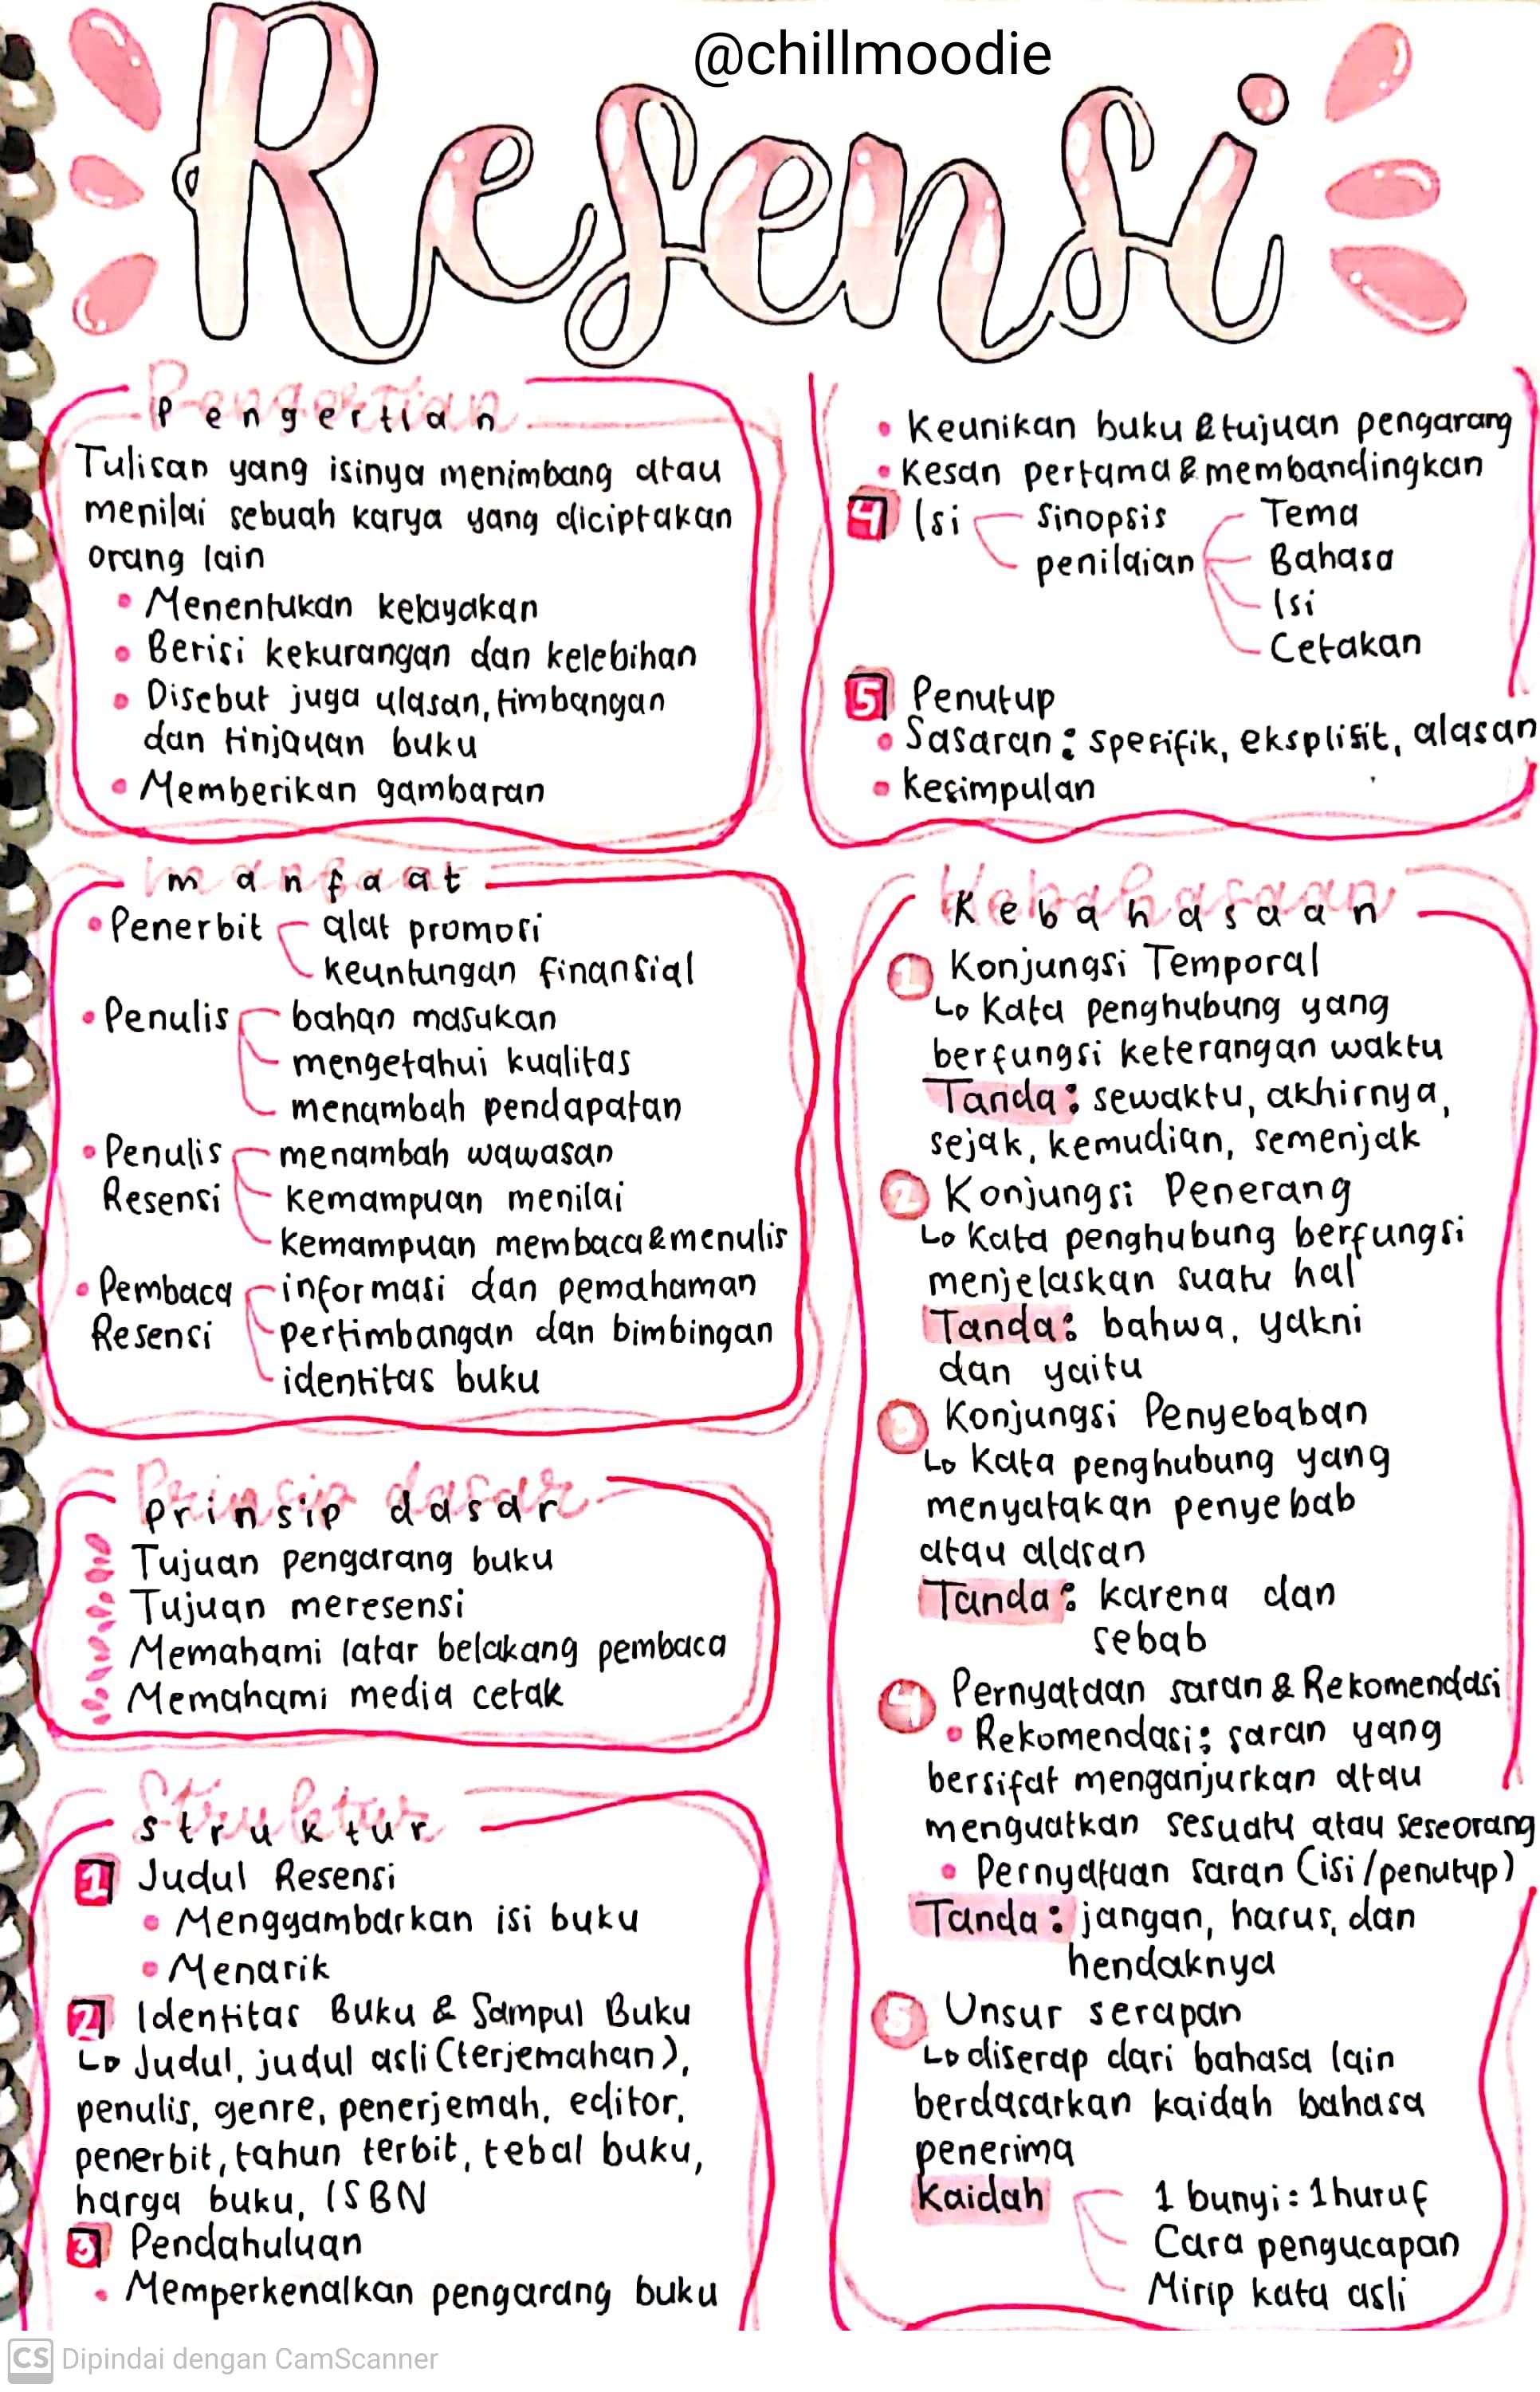 @chillmoodie
Resensi
Pengertian
Tulisan yang isinya menimbang atau
menilai sebuah karya yang diciptakan
orang lain
• Menentukan kelayakan
• Berisi kekurangan dan kelebihan
• Disebut juga ulasan, timbangan
dan tinjauan buku
• Memberikan gambaran
manfaat
• Penerbit alat promosi
keuntungan finansial
• Penulis bahan masukan
mengetahui kualitas
menambah pendapatan
• Penulis menambah wawasan
Resensi kemampuan menilai
kemampuan membaca & menulis
• Pembaca informasi dan pemahaman
Resensi pertimbangan dan bimbingan
identitas buku
Prinsip dasar
Tujuan pengarang buku
Tujuan meresensi
Memahami latar belakang pembaca
Memahami media cetak
struktur
1 Judul Resensi
• Menggambarkan isi buku
• Menarik
2 Identitas Buku & Sampul Buku
↳ Judul, judul asli (terjemahan),
penulis, genre, penerjemah, editor,
penerbit, tahun terbit, tebal buku,
harga buku, ISBN
3 Pendahuluan
• Memperkenalkan pengarang buku
• Keunikan buku & tujuan pengarang
• Kesan pertama & membandingkan
4 Isi sinopsis Tema
penilaian Bahasa
Isi
Cetakan
5 Penutup
• Sasaran : spesifik, eksplisit, alasan
• kesimpulan
Kebahasaan
1 Konjungsi Temporal
↳ Kata penghubung yang
berfungsi keterangan waktu
Tanda : sewaktu, akhirnya,
sejak, kemudian, semenjak
2 Konjungsi Penerang
↳ Kata penghubung berfungsi
menjelaskan suatu hal
Tanda : bahwa, yakni
dan yaitu
3 Konjungsi Penyebaban
↳ Kata penghubung yang
menyatakan penyebab
atau alasan
Tanda : karena dan
sebab
4 Pernyataan saran & Rekomendasi
• Rekomendasi : saran yang
bersifat menganjurkan atau
menguatkan sesuatu atau seseorang
• Pernyataan saran (isi/penutup)
Tanda : jangan, harus, dan
hendaknya
5 Unsur serapan
↳ diserap dari bahasa lain
berdasarkan kaidah bahasa
penerima
Kaidah 1 bunyi = 1 huruf
Cara pengucapan
Mirip kata asli
CS Dipindai dengan CamScanner